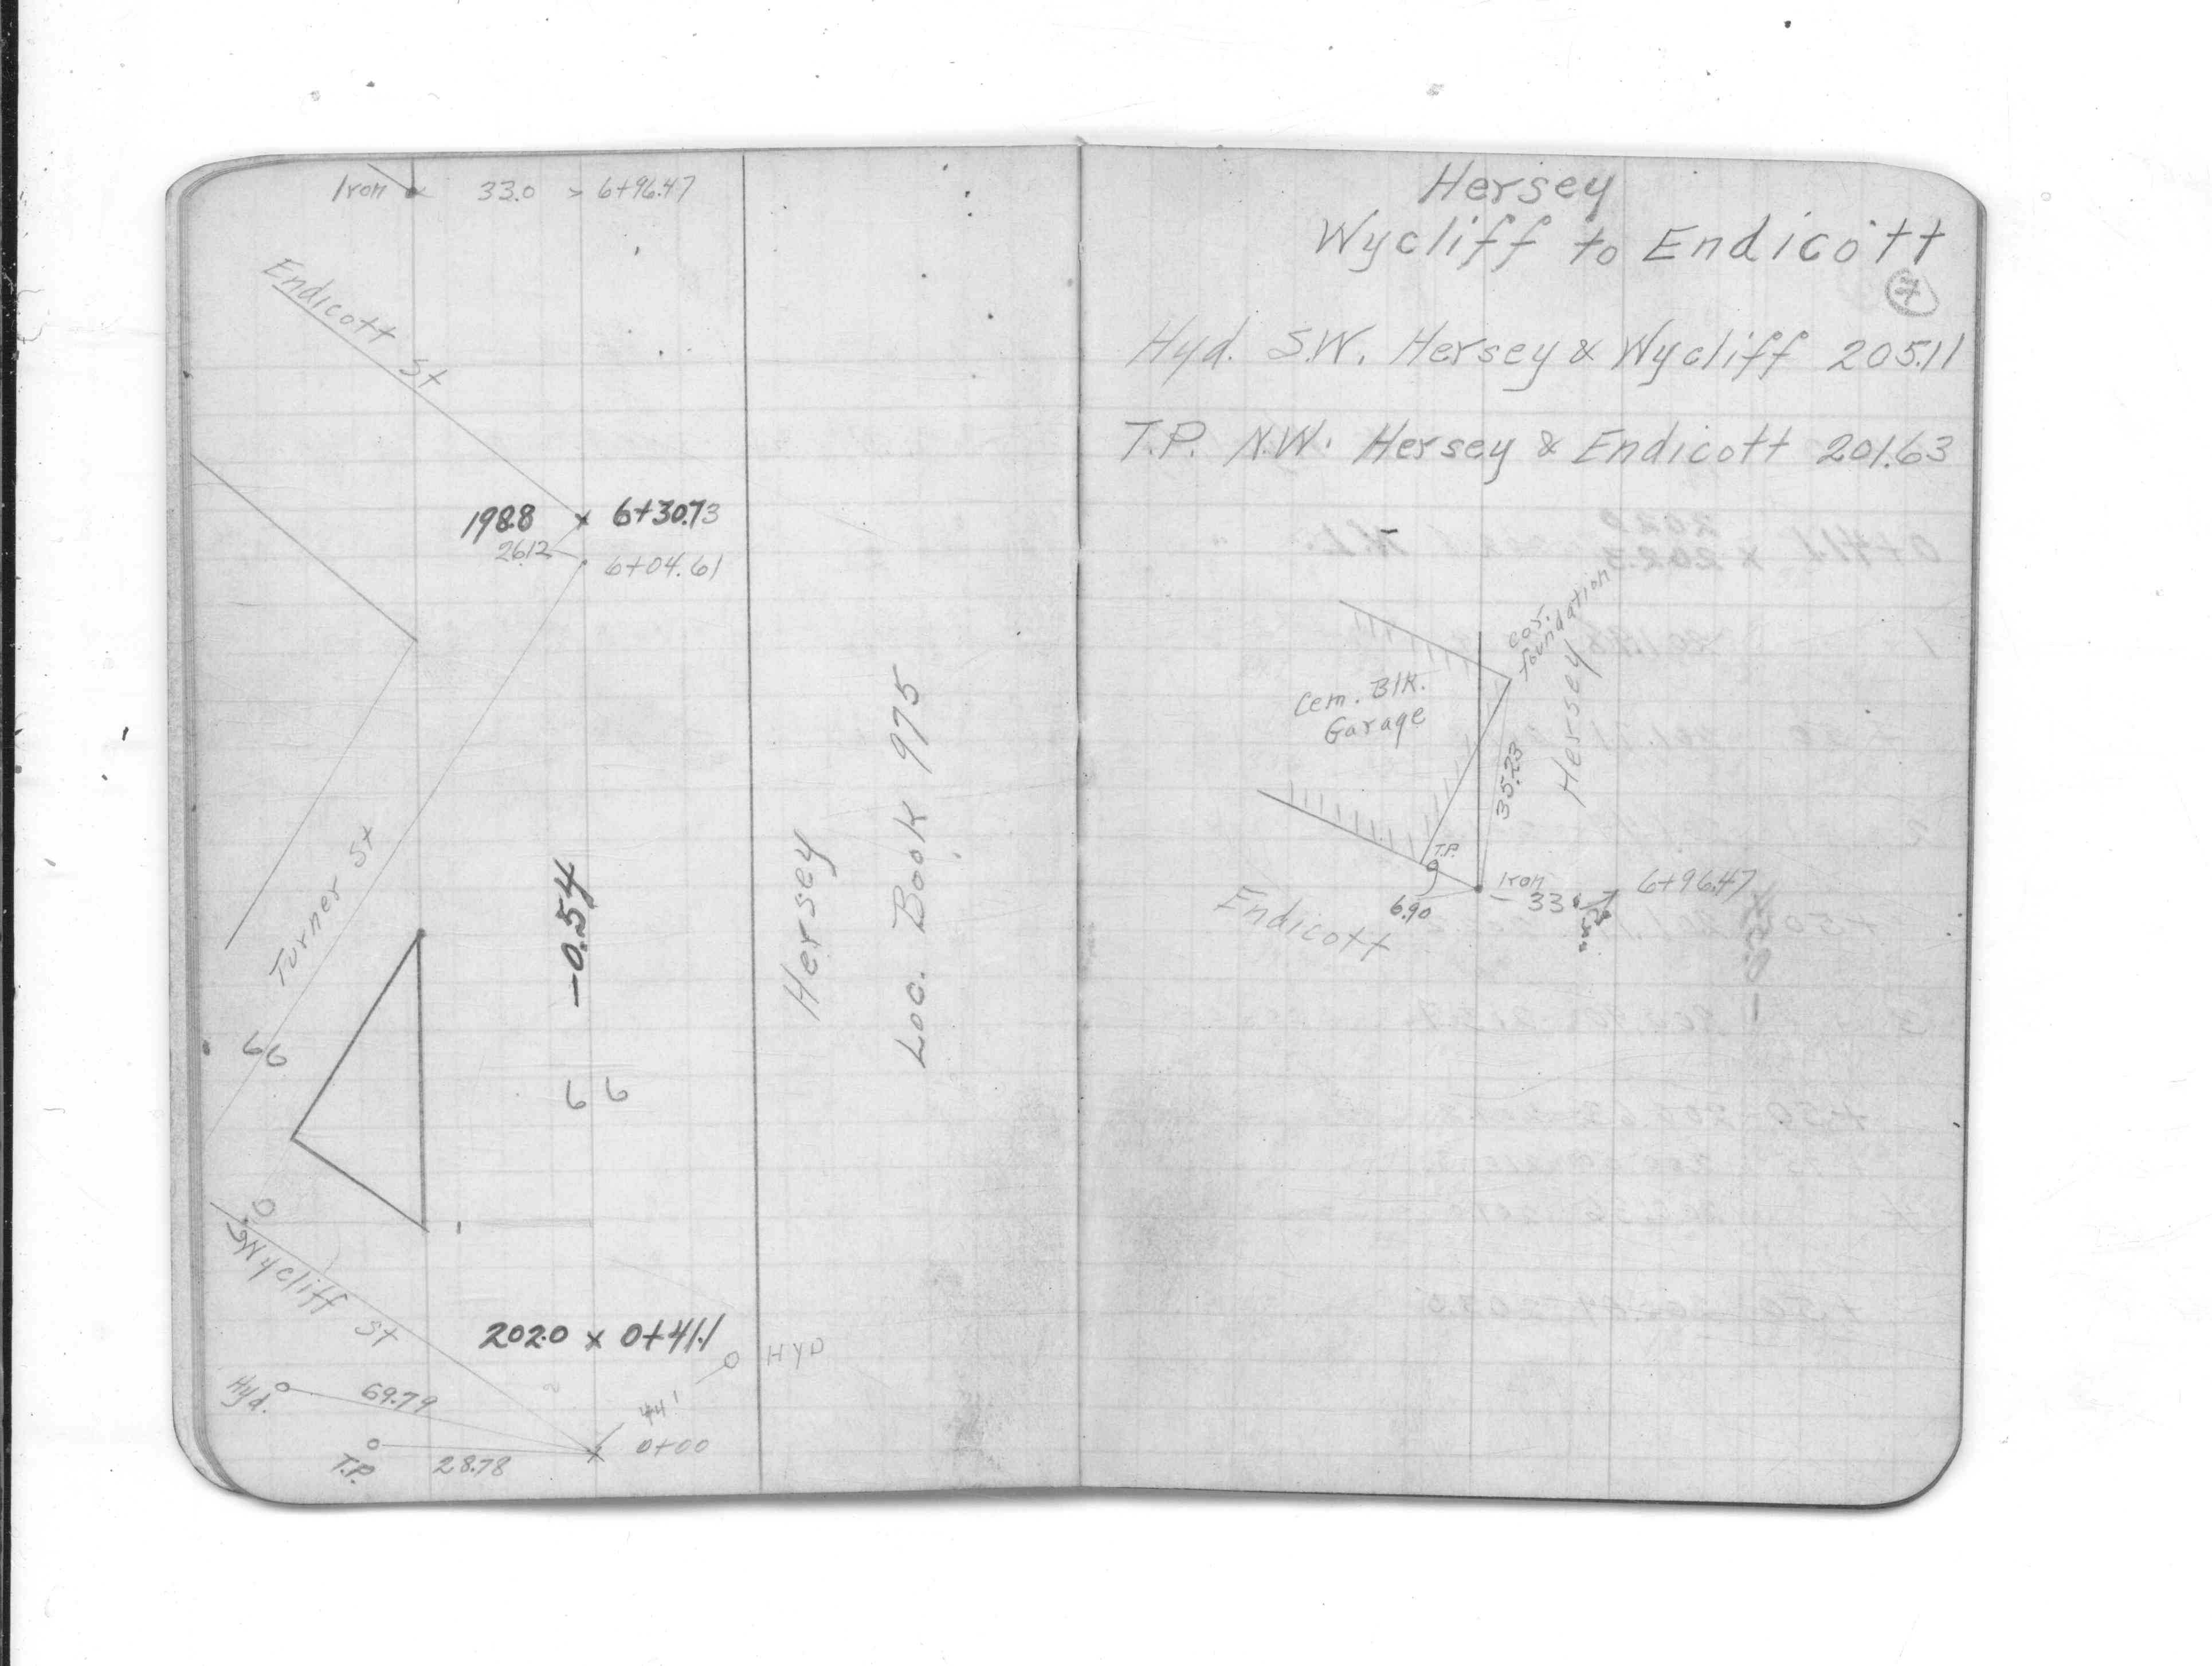 Iron x 33.0 > 6+96.47
Endicott St
198.8 x 6+30.73
26.12
6+04.61
Turner St
66
-0.54
66
Hersey
Loc. Book 975
Wycliff St
202.0 x 0+41.1
HYD
Hyd.
69.79
44'
0+00
T.P.
28.78
Hersey
Wycliff to Endicott
7
Hyd. S.W. Hersey & Wycliff 205.11
T.P. N.W. Hersey & Endicott 201.63
Cor.
Foundation
Cem. Blk.
Garage
Hersey
35.23
T.P.
Iron
33
6+96.47
6.90
Endicott